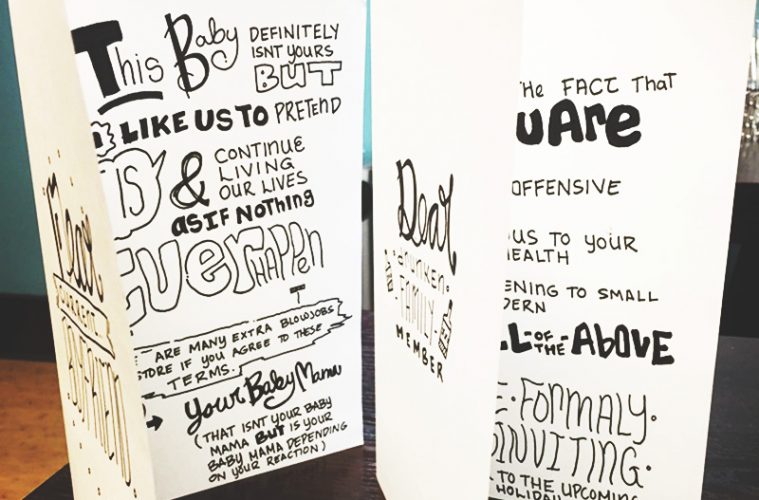 Dear
CURRENT
BOYFRIEND
This Baby
DEFINITELY
ISNT YOURS
BUT
LIKE US TO PRETEND
IS
& CONTINUE
LIVING
OUR LIVES
AS IF NOTHING
EVER HAPPEN
ARE MANY EXTRA BLOWJOBS
STORE IF YOU AGREE TO THESE
TERMS.
Your Baby Mama
(THAT ISNT YOUR BABY
MAMA BUT IS YOUR
BABY MAMA DEPENDING
ON YOUR REACTION)
Dear
DRUNKEN
FAMILY
MEMBER
THE FACT THAT
U ARE
OFFENSIVE
OUS TO YOUR
HEALTH
ENING TO SMALL
DERN
LL-OF-THE-ABOVE
E·FORMALY·
INVITING·
L TO THE UPCOMING
HOLIDA